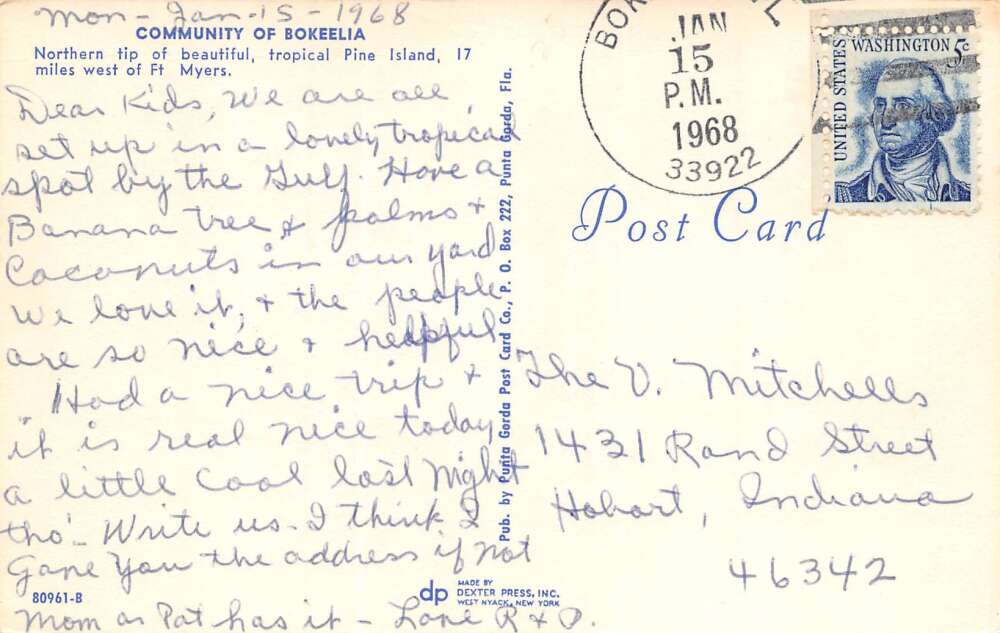 Mon - Jan - 15 - 1968
COMMUNITY OF BOKEELIA
Northern tip of beautiful, tropical Pine Island, 17
miles west of Ft Myers.
Dear Kids, We are all
set up in a lovely tropical
spot by the Gulf. Have a
Banana tree & palms +
Coconuts in our yard
We love it, + the people
are so nice + helpful
Had a nice trip +
it is real nice today
a little Cool last Night
tho'- Write us - I think I
Gave You the address if not
Mom or Pat has it - Love R & P.
80961-B
Pub. by Punta Gorda Post Card Co., P. O. Box 222, Punta Gorda, Fla.
dp
MADE BY
DEXTER PRESS, INC.
WEST NYACK, NEW YORK
BOK
L
JAN
15
P.M.
1968
33922
UNITED STATES
WASHINGTON 5c
Post Card
The V. Mitchells
1431 Rand Street
Hobart, Indiana
46342